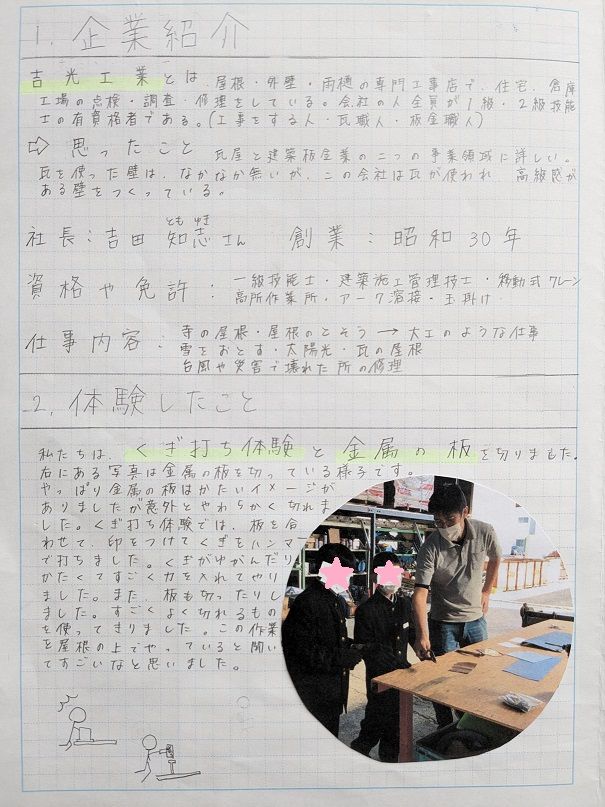 1. 企業紹介
吉光工業とは、屋根・外壁・雨樋の専門工事店で、住宅、倉庫
工場の点検・調査・修理をしている。会社の人全員が1級・2級技能
士の有資格者である。(工事をする人・瓦職人・板金職人)
⇨ 思ったこと 瓦屋と建築板金業の二つの事業領域に詳しい。
瓦を使った壁は、なかなか無いが、この会社は瓦が使われ、高級感が
ある壁をつくっている。
とも ゆき
社長：吉田 知志さん 創業：昭和30年
資格や免許：一級技能士・建築施工管理技士・移動式クレーン
高所作業所・アーク溶接・玉掛け
仕事内容：寺の屋根・屋根のとそう→大工のような仕事
雪をおとす・太陽光・瓦の屋根
台風や災害で壊れた所の修理
2. 体験したこと
私たちは、くぎ打ち体験と金属の板を切りました。
右にある写真は金属の板を切っている様子です。
やっぱり金属の板はかたいイメージが
ありましたが意外とやわらかく切れま
した。くぎ打ち体験では、板を合
わせて、印をつけてくぎをハンマー
で打ちました。くぎがゆがんだり
かたくてすごく力を入れてやり
ました。また、板も切ったりし
ました。すごくよく切れるもの
を使ってきりました。この作業
を屋根の上でやっていると聞い
てすごいなと思いました。